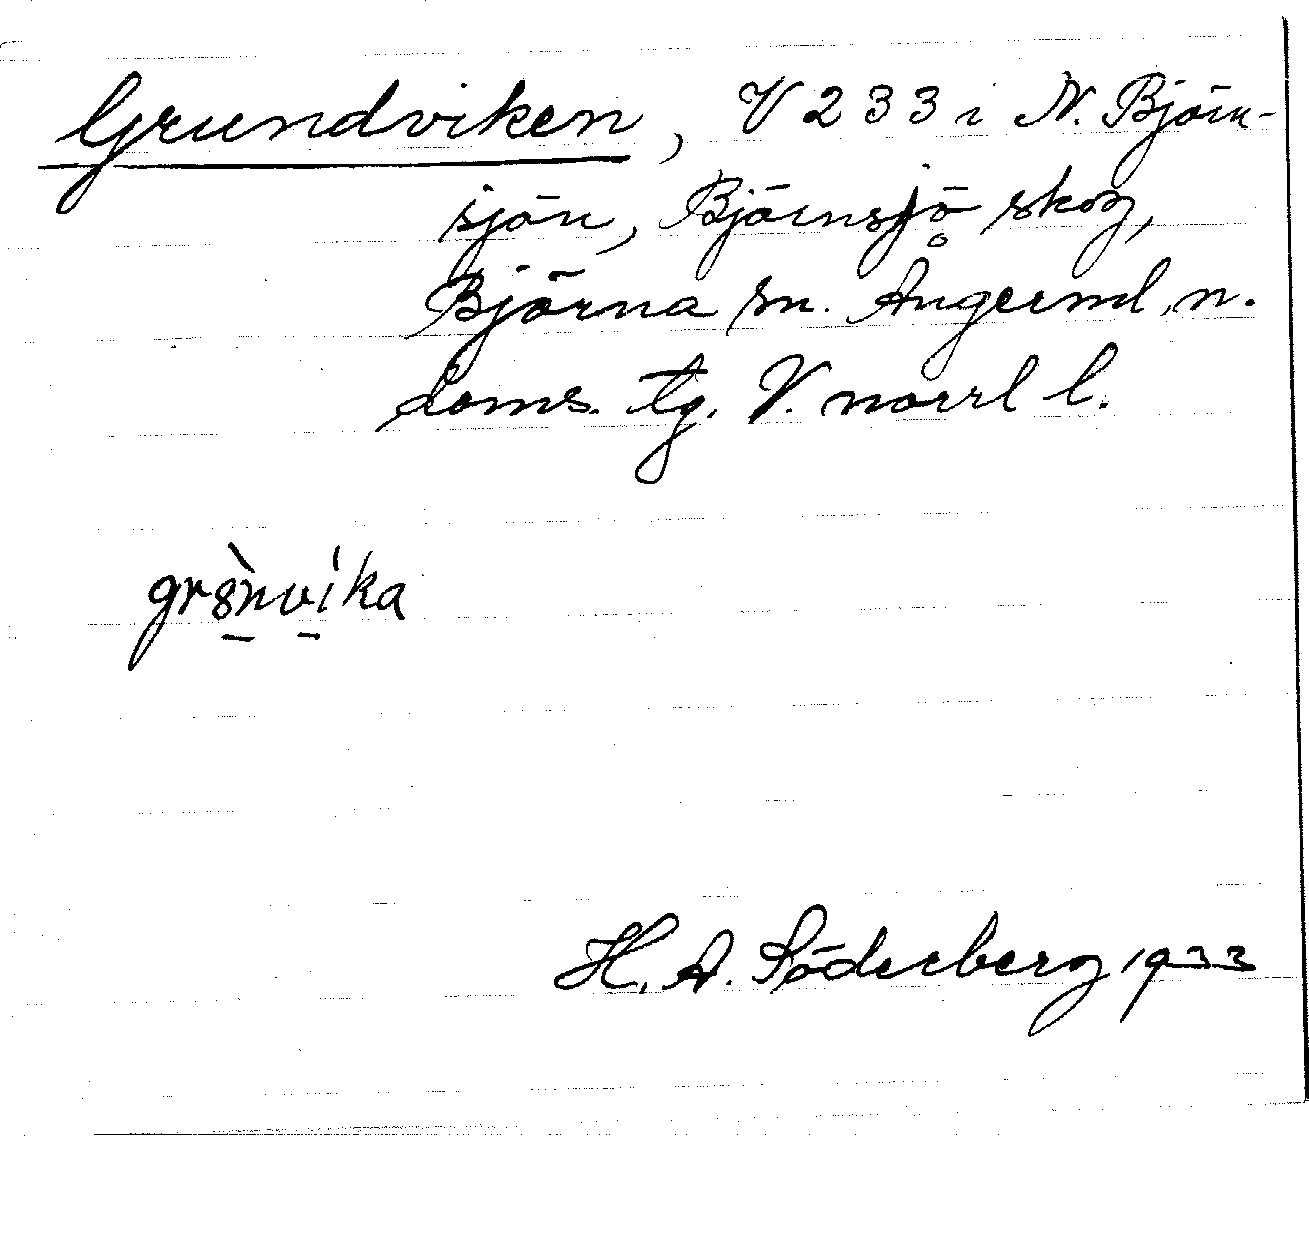 Grundviken, V 233 i N. Björn-
sjön, Björnsjö skog,
Björna sn. Ångerml, n.
doms. tg. V. norrl l.
gr8̱̀nví̱ka
H. A. Söderberg 1933